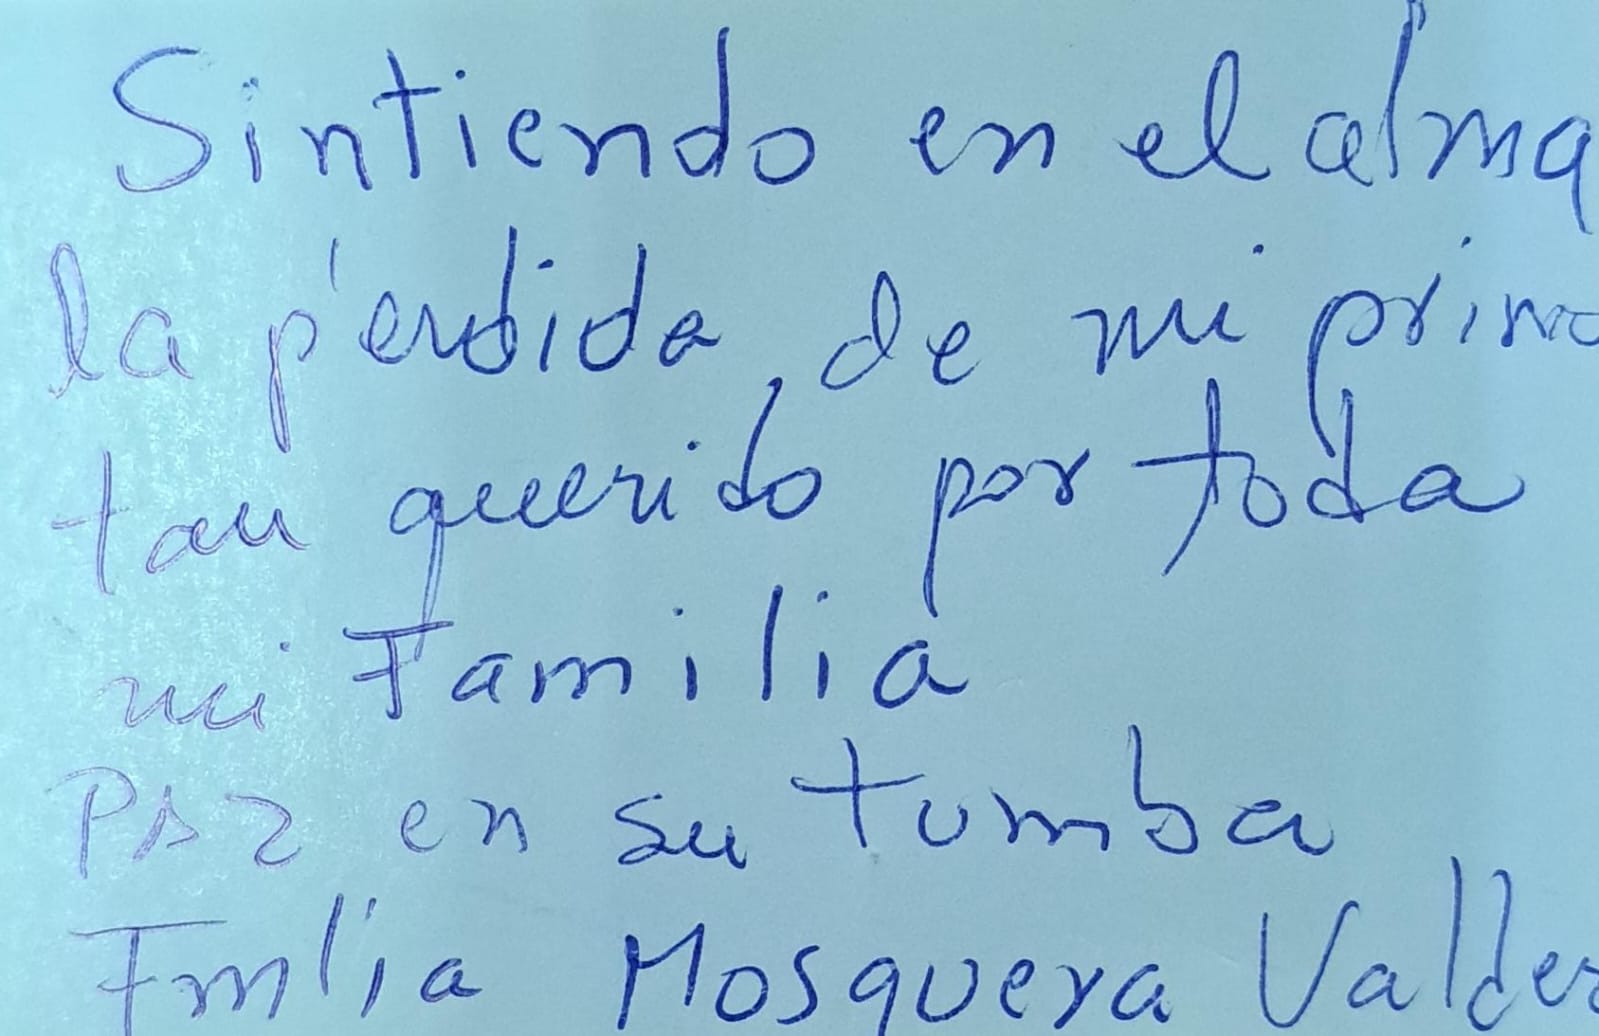 Sintiendo en el alma
la pérdida de mi primo
tan querido por toda
mi Familia
PAZ en su tumba
Fmlia Mosquera Valdes